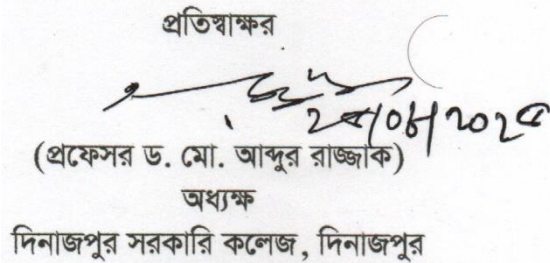 প্রতিস্বাক্ষর
(প্রফেসর ড. মো. আব্দুর রাজ্জাক)
অধ্যক্ষ
দিনাজপুর সরকারি কলেজ, দিনাজপুর